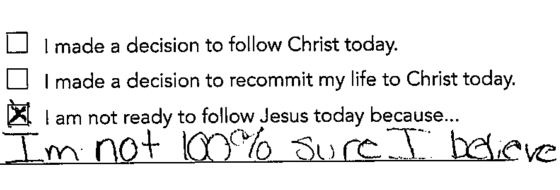 I made a decision to follow Christ today.
I made a decision to recommit my life to Christ today.
I am not ready to follow Jesus today because...
Im not 100% sure I believe